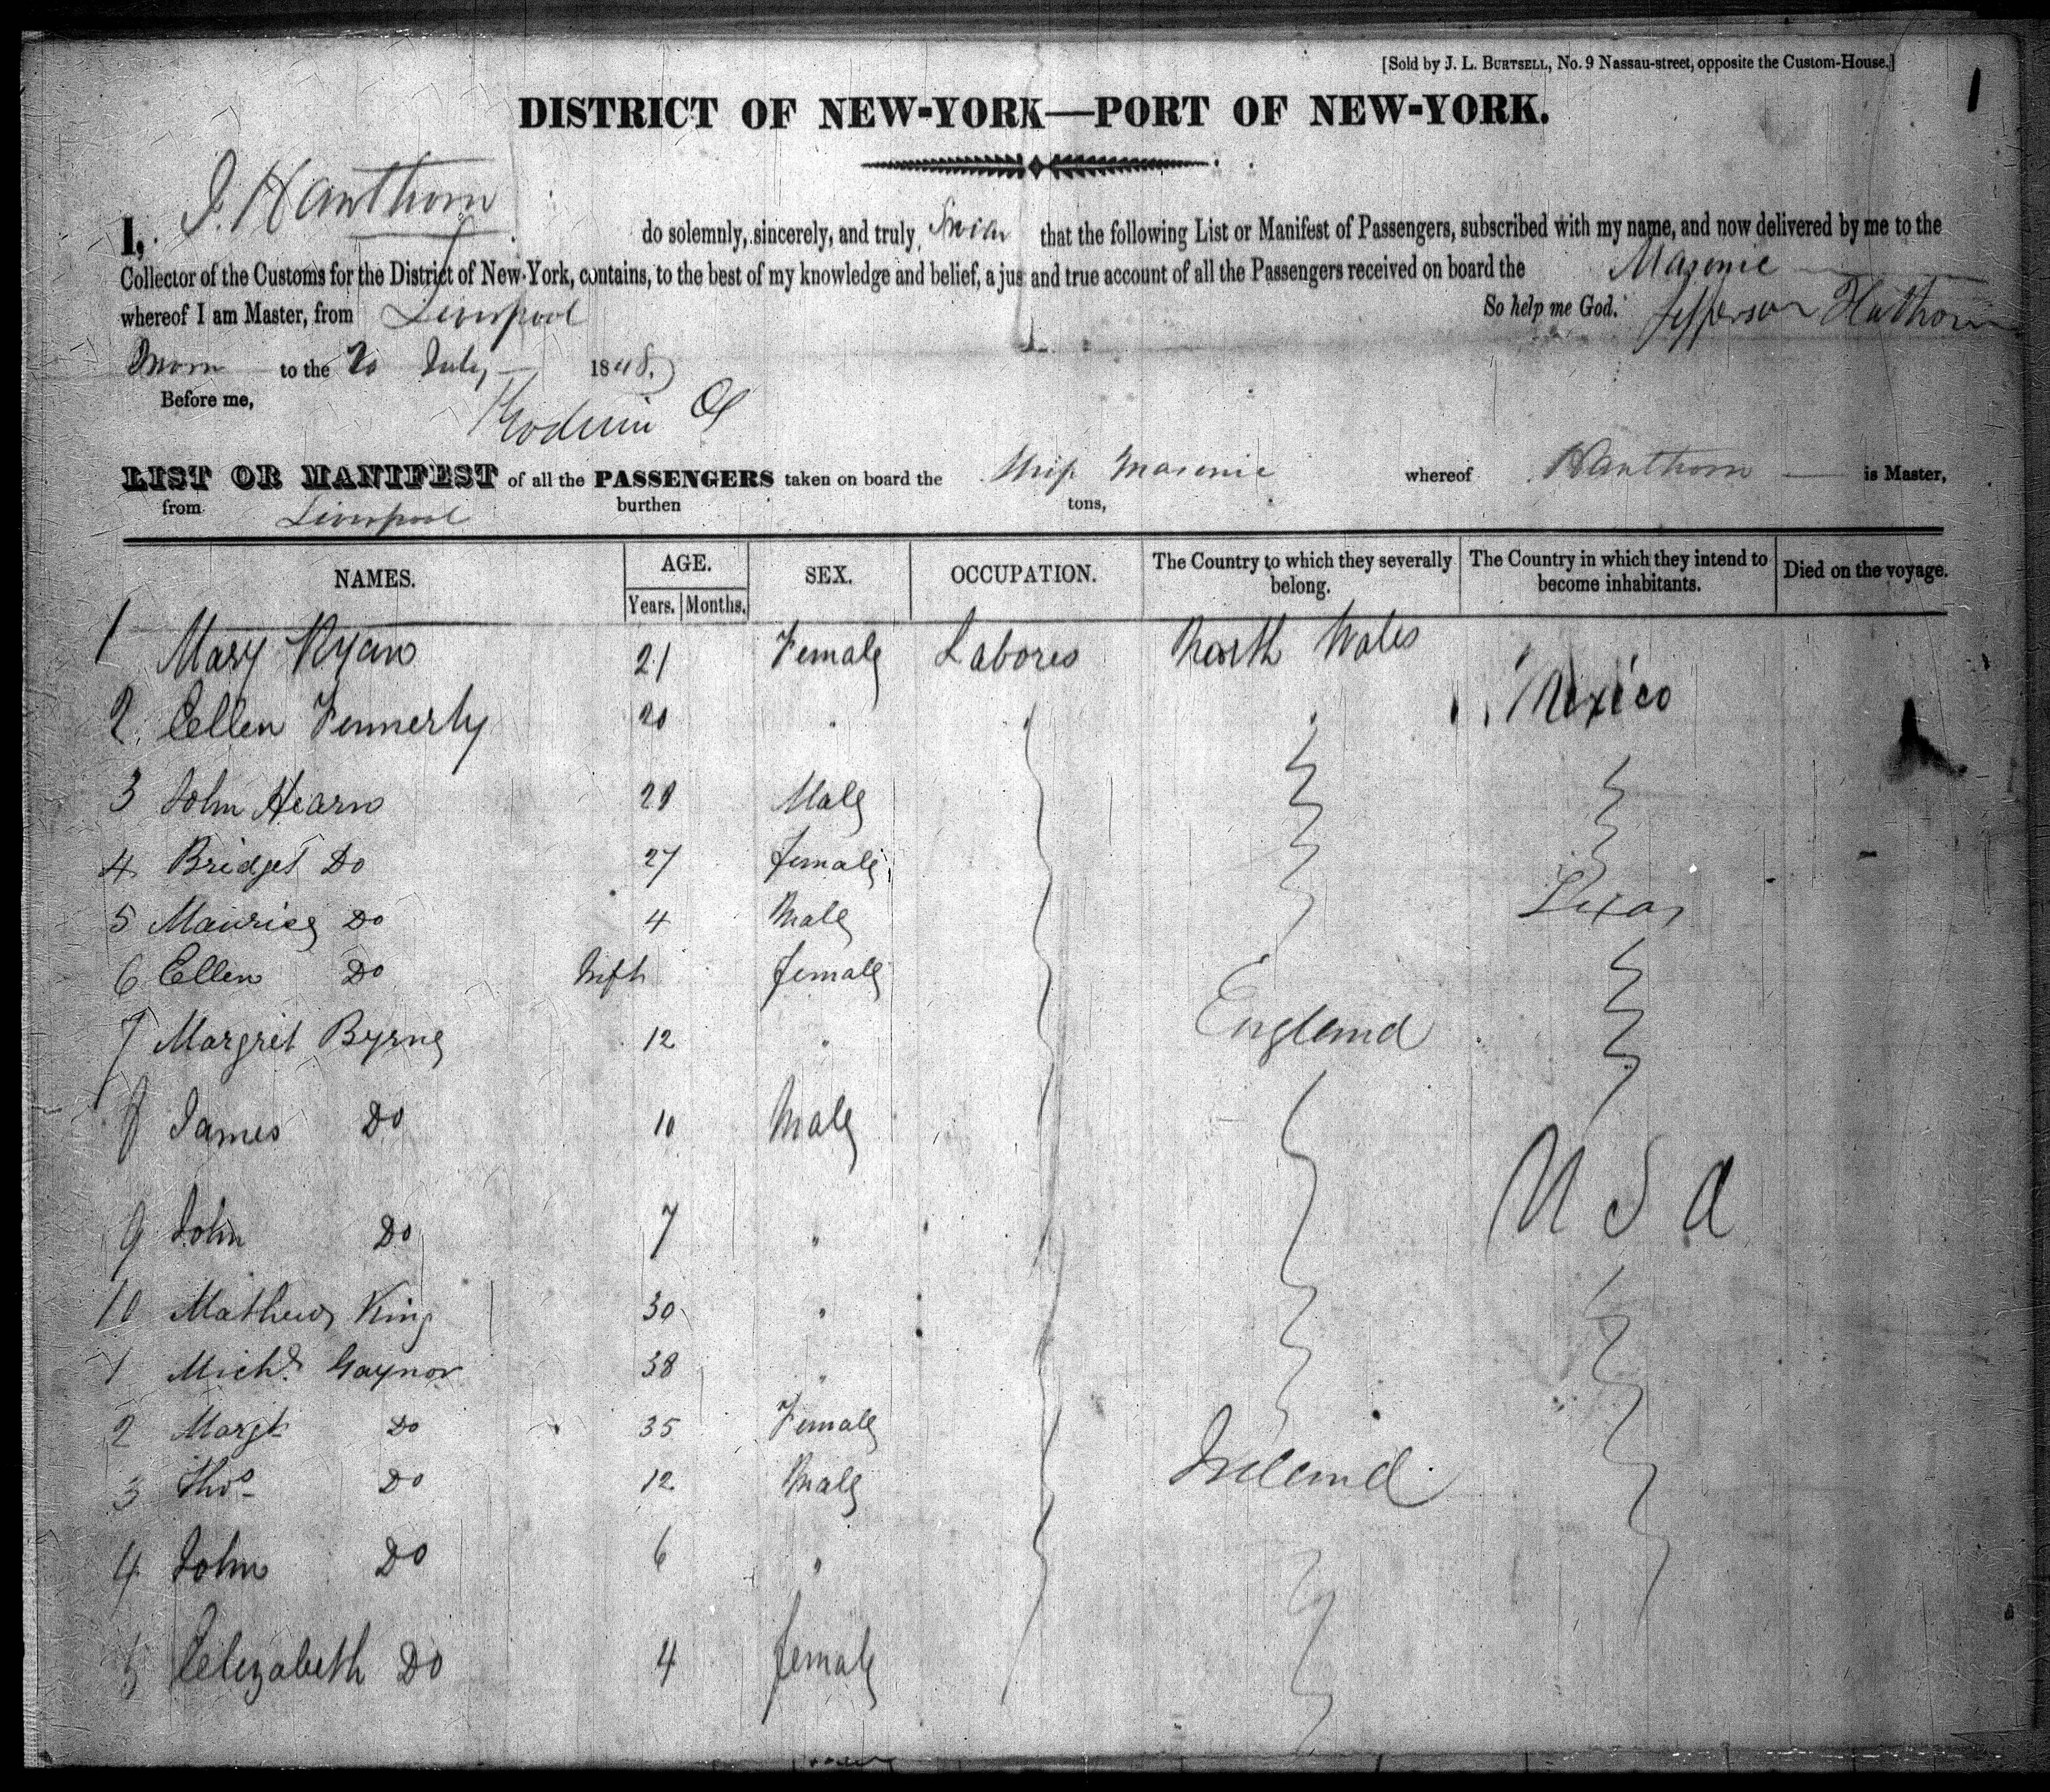 [Sold by J. L. BURTSELL, No. 9 Nassau-street, opposite the Custom-House.]
1
DISTRICT OF NEW-YORK—PORT OF NEW-YORK.
I, J. Hawthorn do solemnly, sincerely, and truly swear that the following List or Manifest of Passengers, subscribed with my name, and now delivered by me to the
Collector of the Customs for the District of New-York, contains, to the best of my knowledge and belief, a jus and true account of all the Passengers received on board the Masonic
whereof I am Master, from Liverpool So help me God. Jefferson Hathorn
Sworn to the 20 July 1848.
Before me,
LIST OR MANIFEST of all the PASSENGERS taken on board the Ship Masonic whereof Hawthorn is Master,
from Liverpool burthen tons,
NAMES. AGE. SEX. OCCUPATION. The Country to which they severally belong. The Country in which they intend to become inhabitants. Died on the voyage.
Years. Months.
1 Mary Ryan 21 Female Labores North Wales
2 Ellen Fennerty 20 " Mexico
3 John Hearn 29 Male
4 Bridget Do 27 female
5 Maurice Do 4 Male Texas
6 Ellen Do Inft female
7 Margret Byrne 12 " England
8 James Do 10 Male
9 John Do 7 " U S A
10 Mathew King 30 "
1 Michl Gaynor 38 "
2 Margt Do 35 Female
3 Thos Do 12 Male Ireland
4 John Do 6 "
5 Elizabeth Do 4 female